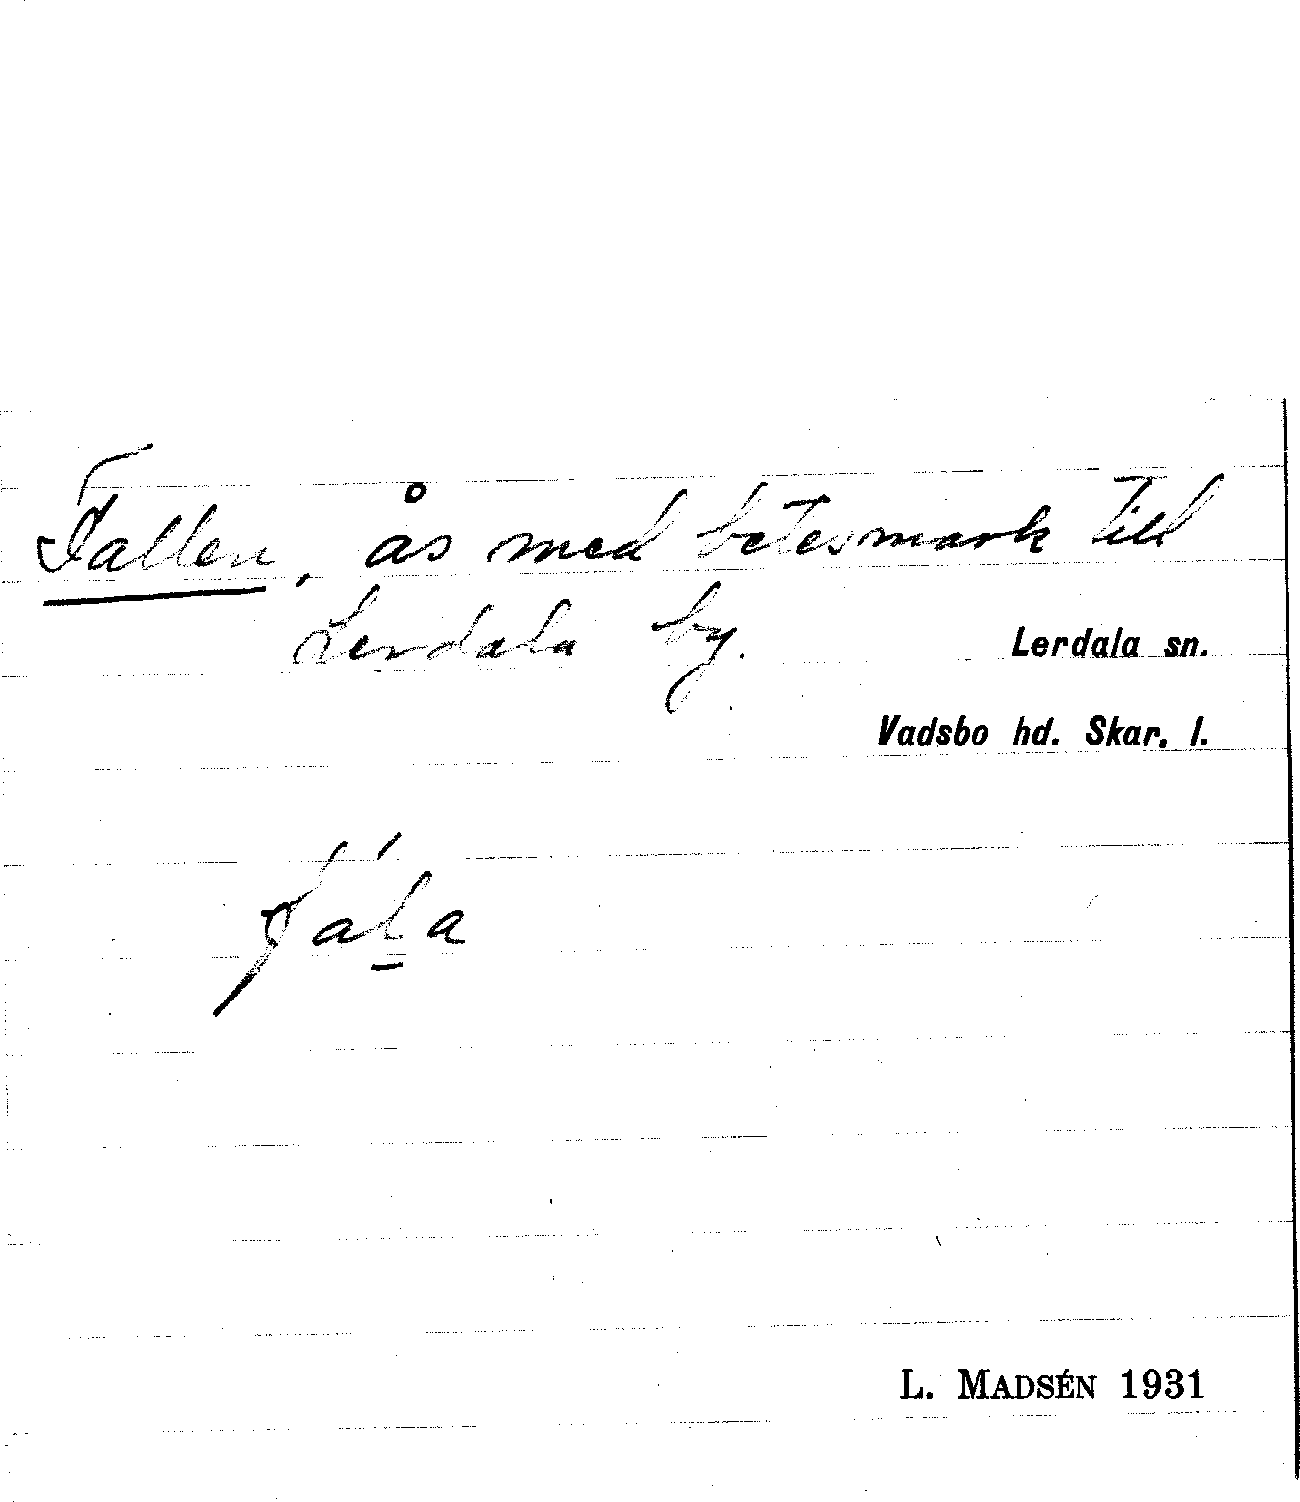 Fallen, ås med betesmark till
Lerdala by.
Lerdala sn.
Vadsbo hd. Skar. l.
fála
L. MADSÉN 1931